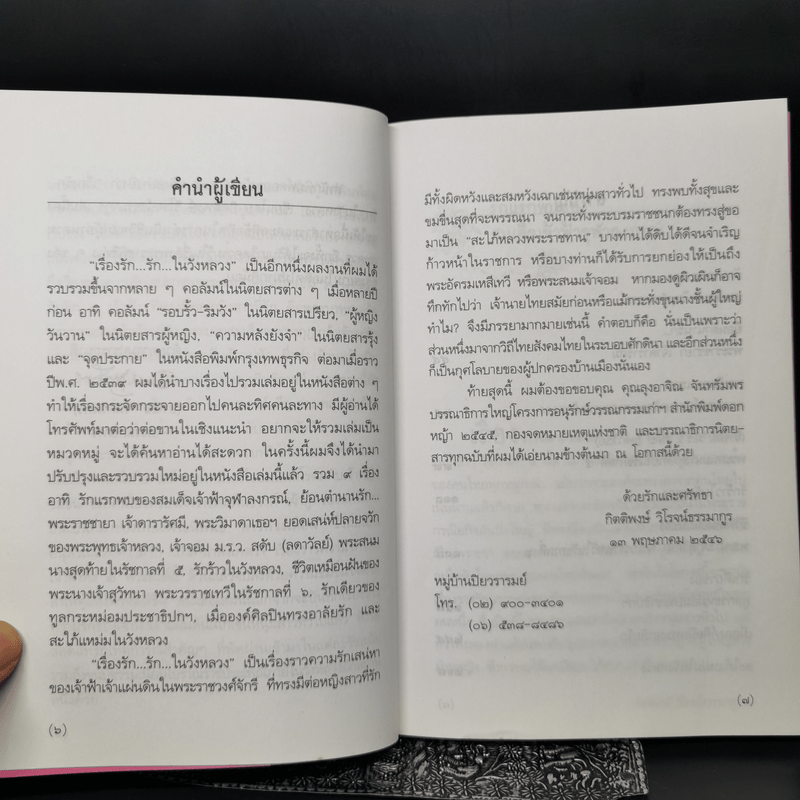 คำนำผู้เขียน
"เรื่องรัก...รัก...ในวังหลวง" เป็นอีกหนึ่งผลงานที่ผมได้
รวบรวมขึ้นจากหลาย ๆ คอลัมน์ในนิตยสารต่าง ๆ เมื่อหลายปี
ก่อน อาทิ คอลัมน์ "รอบรั้ว-ริมวัง" ในนิตยสารเปรียว, "ผู้หญิง
วันวาน" ในนิตยสารผู้หญิง, "ความหลังยังจำ" ในนิตยสารรุ้ง
และ "จุดประกาย" ในหนังสือพิมพ์กรุงเทพธุรกิจ ต่อมาเมื่อราว
ปีพ.ศ. ๒๕๓๙ ผมได้นำบางเรื่องไปรวมเล่มอยู่ในหนังสือต่าง ๆ
ทำให้เรื่องกระจัดกระจายออกไปคนละทิศคนละทาง มีผู้อ่านได้
โทรศัพท์มาต่อว่าต่อขานในเชิงแนะนำ อยากจะให้รวมเล่มเป็น
หมวดหมู่ จะได้ค้นหาอ่านได้สะดวก ในครั้งนี้ผมจึงได้นำมา
ปรับปรุงและรวบรวมใหม่อยู่ในหนังสือเล่มนี้แล้ว รวม ๙ เรื่อง
อาทิ รักแรกพบของสมเด็จเจ้าฟ้าจุฬาลงกรณ์, ย้อนตำนานรัก...
พระราชชายา เจ้าดารารัศมี, พระวิมาดาเธอฯ ยอดเสน่ห์ปลายจวัก
ของพระพุทธเจ้าหลวง, เจ้าจอม ม.ร.ว. สดับ (ลดาวัลย์) พระสนม
นางสุดท้ายในรัชกาลที่ ๕, รักร้าวในวังหลวง, ชีวิตเหมือนฝันของ
พระนางเจ้าสุวัทนา พระวรราชเทวีในรัชกาลที่ ๖, รักเดียวของ
ทูลกระหม่อมประชาธิปกฯ, เมื่อองค์ศิลปินทรงอาลัยรัก และ
สะใภ้แหม่มในวังหลวง
"เรื่องรัก...รัก...ในวังหลวง" เป็นเรื่องราวความรักเสน่หา
ของเจ้าฟ้าเจ้าแผ่นดินในพระราชวงศ์จักรี ที่ทรงมีต่อหญิงสาวที่รัก
(๖)
มีทั้งผิดหวังและสมหวังเฉกเช่นหนุ่มสาวทั่วไป ทรงพบทั้งสุขและ
ขมขื่นสุดที่จะพรรณนา จนกระทั่งพระบรมราชชนกต้องทรงสู่ขอ
มาเป็น "สะใภ้หลวงพระราชทาน" บางท่านได้ดิบได้ดีจนจำเริญ
ก้าวหน้าในราชการ หรือบางท่านก็ได้รับการยกย่องให้เป็นถึง
พระอัครมเหสีเทวี หรือพระสนมเจ้าจอม หากมองดูผิวเผินก็อาจ
ทึกทักไปว่า เจ้านายไทยสมัยก่อนหรือแม้กระทั่งขุนนางชั้นผู้ใหญ่
ทำไม? จึงมีภรรยามากมายเช่นนี้ คำตอบก็คือ นั่นเป็นเพราะว่า
ส่วนหนึ่งมาจากวิถีไทยสังคมไทยในระบอบศักดินา และอีกส่วนหนึ่ง
ก็เป็นกุศโลบายของผู้ปกครองบ้านเมืองนั่นเอง
ท้ายสุดนี้ ผมต้องขอขอบคุณ คุณลุงอาจิณ จันทรัมพร
บรรณาธิการใหญ่โครงการอนุรักษ์วรรณกรรมเก่าฯ สำนักพิมพ์ดอก
หญ้า ๒๕๔๕, กองจดหมายเหตุแห่งชาติ และบรรณาธิการนิตย-
สารทุกฉบับที่ผมได้เอ่ยนามข้างต้นมา ณ โอกาสนี้ด้วย
ด้วยรักและศรัทธา
กิตติพงษ์ วิโรจน์ธรรมากูร
๑๓ พฤษภาคม ๒๕๔๖
หมู่บ้านปิยวรารมย์
โทร. (๐๒) ๙๐๐-๓๔๐๑
(๐๖) ๕๓๘-๘๔๘๖
(๗)